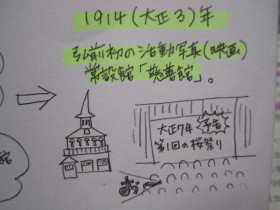 1914(大正3)年
弘前初の活動写真(映画)
常設館「慈善館」。
大正7年
予告
第1回の桜祭り
お〜
館